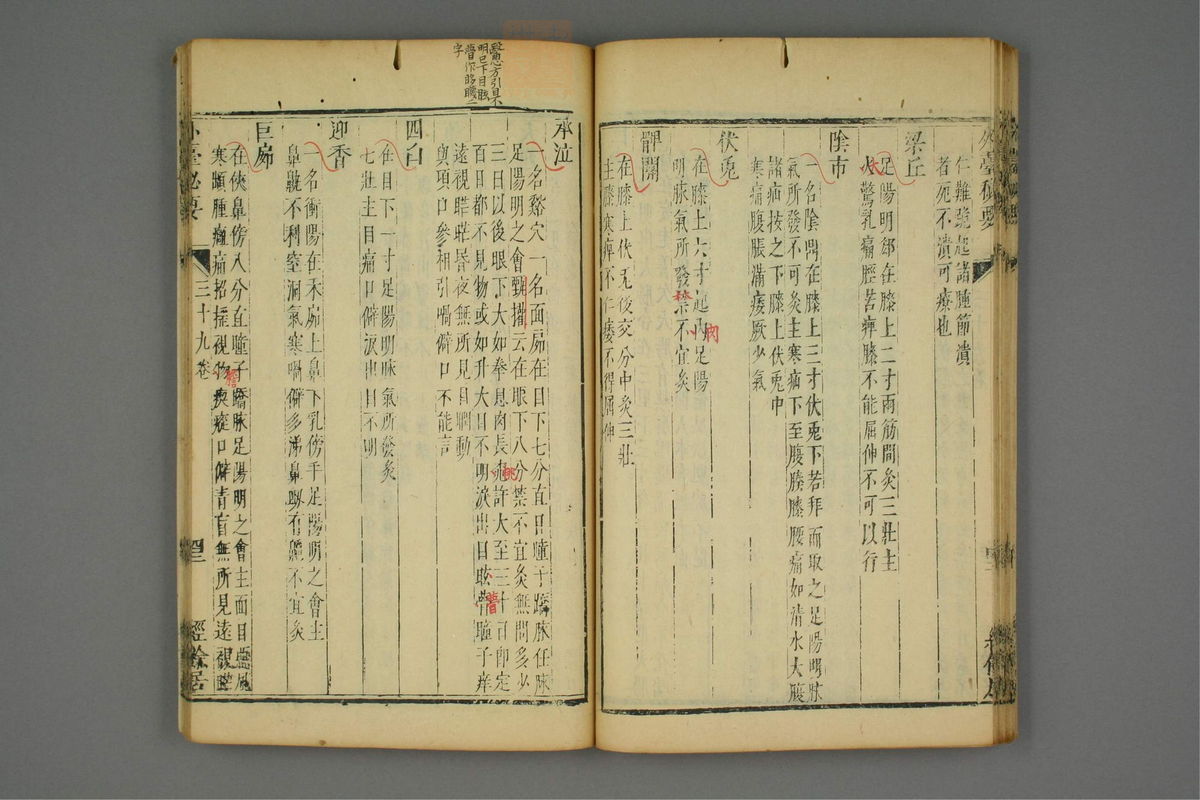 外臺秘要
仁難跪起諸腫節潰
者死不潰可療也
梁丘
足陽明郄在膝上二寸兩筋間灸三壯主
大驚乳痛脛苦痹膝不能屈伸不可以行
大
陰市
一名陰鼎在膝上三寸伏兎下若拜而取之足陽明脉
氣所發不可灸主寒痛下至腹膝膝腰痛如清水大腹
諸疝按之下膝上伏兎中
寒痛腹脹滿痿厥少氣
伏兎
在膝上六寸起內足陽
肉
明脉氣所發禁不宜灸
禁
髀關
在膝上伏兎後交分中灸三壯
主膝寒痹不仁痿不得屈伸
醫心方引
明已下目眩
瞢作
字
承泣
一名谿穴一名面屌在目下七分直目瞳子蹻脉任脉
足陽明之會甄權云在眼下八分禁不宜灸無問多少
三日以後眼下大如拳息肉長許大至三十日即定
桃
百日都不見物或如升大目不明淚出目眩瞢瞳子痒
瞢
遠視䀮䀮昏夜無所見目瞤動
與項口參相引喎僻口不能言
四白
在目下一寸足陽明脉氣所發灸
七壯主目痛口僻淚出目不明
迎香
一名衝陽在禾屌上鼻下孔傍手足陽明之會主
鼻鼽不利窒洞氣寒喎僻多涕鼻衄有癰不宜灸
巨屌
在俠鼻傍八分直瞳子蹻脉足陽明之會主面目惡風
寒䪼腫癰痛招搖視物瘈瘲口僻青盲無所見遠視䀮
外臺祕要
三十九卷
四三
經餘居